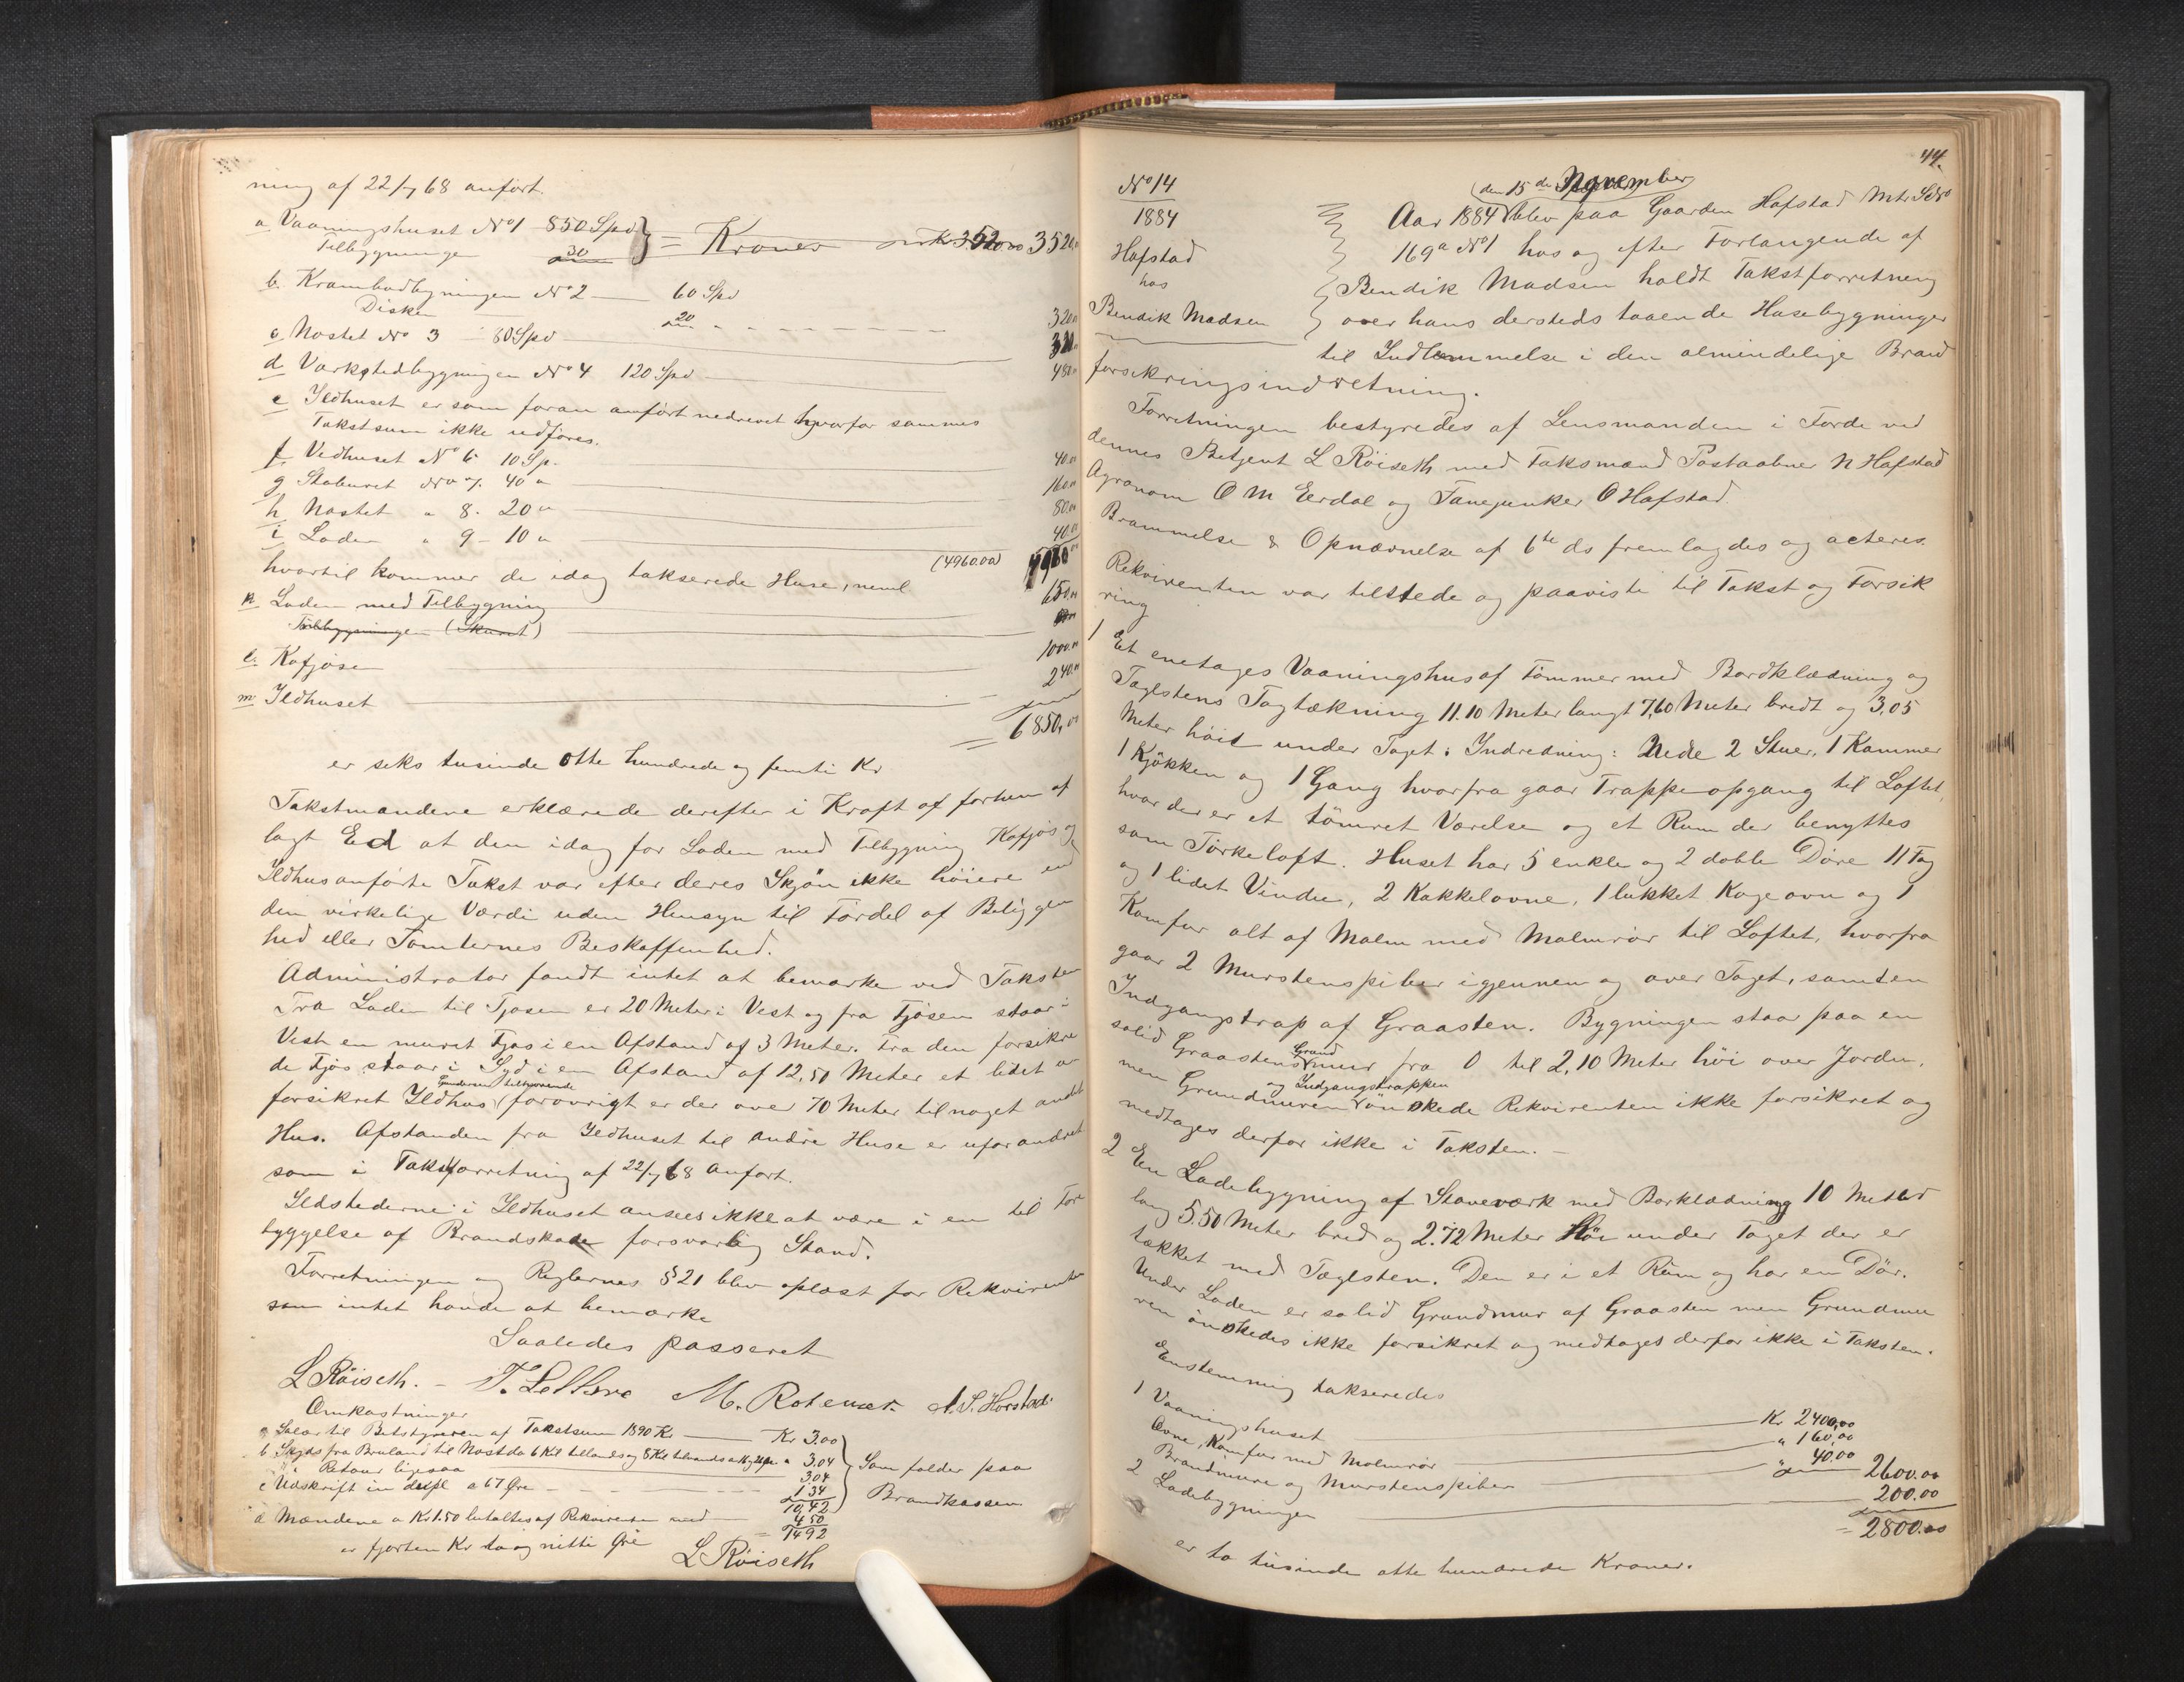 ning af 22/7 68 anført.
a Vaaningshuset No 1 850 Spd } = Kroner 3520,00
Tilbygninge 30
b. Krambodbygningen No 2 — 60 Spd
Disken 20 320,00
c Nøstet No 3 80 Spd 320,00
d Værkstedbygningen No 4 120 Spd 480,00
e Ildhuset er som foran anført nedrevet hvorfor sammes
Takstsum ikke udføres.
f Vedhuset No 6 10 Sp. 40,00
g Staburet No 7. 40 " 160,00
h Nøstet " 8. 20 " 80,00
i Laden " 9 - 10 " 40,00
(4960.00) 4960,00
hvortil kommer de idag takserede Huse, neml
k Laden med Tilbygning 650,00
Tilbygningen (Skuret)
l. Kofjøsen 1000,00
m Ildhuset 240,00
= 6850,00
er seks tusinde otte hundrede og femti Kr
Takstmændene erklærede derefter i Kraft af forhen af
lagt Ed at den idag for Laden med Tilbygning Kofjøs og
Ildhus anførte Takst var efter deres Skjøn ikke høiere end
den virkelige Værdi uden Hensyn til Fordel af Beliggen
hed eller Tomternes Beskaffenhed.
Administrator fandt intet at bemærke ved Taksten
Fra Laden til Fjøsen er 20 Meter i Vest og fra Fjøsen staar i
Vest en muret Fjøs i en Afstand af 3 Meter. Fra den forsikre
de Fjøs staar i Syd i en Afstand af 12,50 Meter et lidet u
forsikret Ildhus (Gunderen tilhørende) forøvrigt er der over 70 Meter til noget andet
Hus. Afstanden fra Ildhuset til andre Huse er uforandret
som i Takstforretning af 22/7 68 anført.
Ildstederne i Ildhuset ansees ikke at være i en til For
byggelse af Brandskade forsvarlig Stand.
Forretningen og Reglernes § 21 blev oplæst for Rekvirenten
som intet havde at bemærke
Saaledes passeret
L Røiseth. — M. Rotevatn. A. S. Horstad.
Omkostninger
a Salær til Bestyreren af Takstsum 1890 Kr — Kr 3.00
b Skyds fra Bruland til Nøstdal 6 Kil tillands og 8 Kil tilvands " 3.04
Retour ligesaa 3.04
c Udskrift in dupl a 67 Øre 1 34
10,42
Som falder paa
Brandkassen
d Mændene a Kr 1.50 betaltes af Rekvirenten med 4 50
= 14 92
er fjorten Kr to og nitti Øre
L Røiseth
44.
No 14
1884
Hafstad
hos
Bendik Madsen
Aar 1884 (den 15de November) blev paa Gaarden Hafstad Mtr No
169a No 1 hos og efter Forlangende af
Bendik Madsen holdt Takstforretning
over hans dersteds staaende Husebygninger
til Indlemmelse i den almindelige Brand
forsikringsindretning.
Forretningen bestyredes af Lensmanden i Førde ved
dennes Betjent L Røiseth med Taksmænd Postaabner N Hafstad
Agronom O M Eerdal og Fanejunker O Hafstad.
Brammelse & Opnævnelse af 6te ds fremlagdes og acteres.
Rekvirenten var tilstede og paaviste til Takst og Forsik
ring
1 Et enetages Vaaningshus af Tømmer med Bordklædning og
Taglstens Tagtækning 11.10 Meter langt 7,60 Meter bredt og 3,05
Meter høit under Taget. Indredning: Nede 2 Stuer, 1 Kammer
1 Kjøkken og 1 Gang hvorfra gaar Trappeopgang til Loftet,
hvor der er et tømret Værelse og et Rum der benyttes
som Tørkeloft. Huset har 5 enkle og 2 doble Døre 11 Fag
og 1 lidet Vindue, 2 Kakkelovne, 1 lukket Kogeovn og 1
Komfur alt af Malm med Malmrør til Loftet, hvorfra
gaar 2 Murstenspiber igjennem og over Taget, samt en
Indgangstrap af Graasten. Bygningen staar paa en
solid Graastens Grundmur fra 0 til 2,10 Meter høi over Jorden,
men Grundmuren og Indgangstrappen ønskede Rekvirenten ikke forsikret og
medtages derfor ikke i Taksten. —
2 En Ladebygning af Stavværk med Borklædning 10 Meter
lang 5.50 Meter bred og 2.72 Meter høi under Taget der er
tækket med Taglsten. Den er i et Rum og har en Dør.
Under Laden er solid Grundmur af Graasten men Grundmu
ren ønskedes ikke forsikret og medtages derfor ikke i Taksten.
Enstemmig takseredes
1 Vaaningshuset — Kr 2400,00
Ovne, Komfur med Malmrør — " 160,00
Brandmure og Murstenspiber — " 40.00 2600.00
2 Ladebygningen — 200.00
= 2800.00
er to tusinde otte hundrede Kroner.